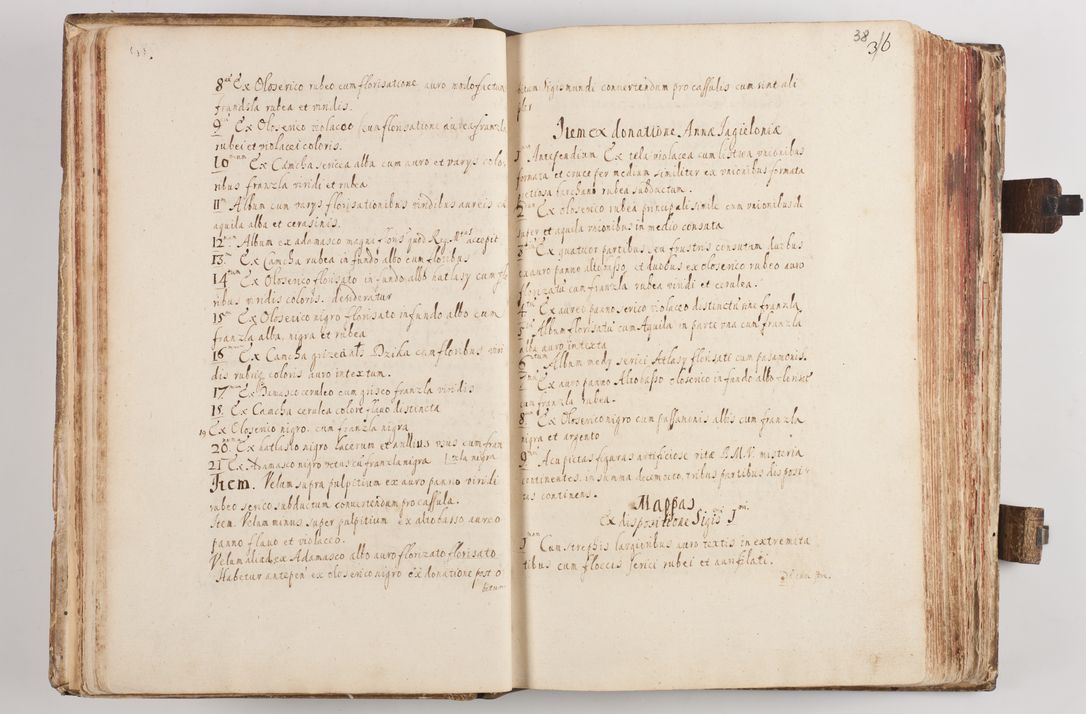 8va Ex Oloserico rubeo cum florisatione auro
frandsla rubea et viridis.
9 Ex Oloserico violaceo cum florisatione aurea franzla
rubei et violacei coloris.
10 Ex Camcha sericea alba cum auro et varys colo
ribus franzla viridi et rubea
11 Album cum varys florisationibus viridibus aureis
aquila alba et cerasinis.
12 Album ex adamasco magni floris quod accepit
13 Ex Camcha rubea in fundo albo cum floribus
14 Ex Oloserico florisato in fundo albo hatlasy cum
ribus viridis coloris. desideratur
15 Ex Oloserico nigro florisato in fundo albo cum
franzla alba, nigra et rubea
16 Ex Camcha Dzika cum floribus viri
dis rubriq coloris auro intextum.
17 Ex Damasco ceruleo cum grisco franzla viridis
18. Ex Camcha cerulea colore flavo distincta
19 Ex Oloserico nigro. cum franzla nigra
20. Ex hatlasio nigro lacerum et nullius usus cum fran
21 Ex Aramasco nigro vetus cu franzla nigra zla nigra
Item. Velum supra pulpitium ex auro panno viridi
rubeo serico subductum convertendum pro cassula.
Item. Velum minus super pulpitium ex altobasso aureo
panno flavo et violaceo.
Velum aliud ex Adamasco albo auro florizato florisato
Habetur antepen ex oloserico nigro ex donatione post o
bitum
38
36
bitum Sigismundi convertendum pro cassulis cum sint ali
Item ex donatione Anna Jagieloniæ
Antependium Ex tela violacea cum listwa unionibus
formata et cruce per medium similiter ex unionibus formata
farchano rubea subductum.
2 Ex oloserico rubea principali simile cum unionibus de
super et aquila unionibus in medio consata
3 Ex quatuor partibus, seu frustris consutam duabus
ex auro panno altobasso, et duobus ex oloserico rubeo auro
cum franzla rubea viridi et cerulea.
4 Ex aureo panno serico violaceo distinctu franzla
5 Album florisatu cum Aquila in parte una cum franzla
alba auro intexta
6 Album medy serici Atlasy florisati cum pasamonis.
7 Ex auro panno Altobasso oloserico in fundo albo
cum franzla rubea.
8 Ex Oloserico nigro cum passamanis albis cum franzla
nigra et argento
9 Acu pictas figuras artificiose vitæ B.M.V. misteria
continentes, in summa decem octo, tribus partibus disposi
tas continens.
Mappas
Ex dispositione Sigis I mi.
Cum strephis largioribus auro textis in extremita
tibus cum floccis serici rubei et